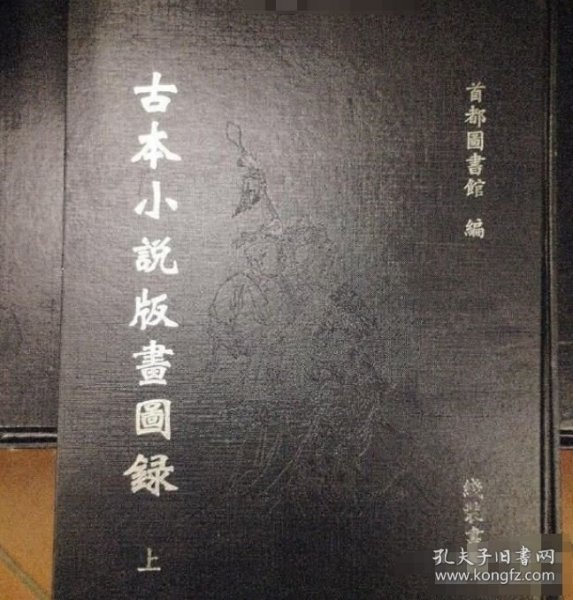 古本小説版畫圖録
上
首都圖書館 編
綫裝書
孔夫子旧书网
www.kongfz.com